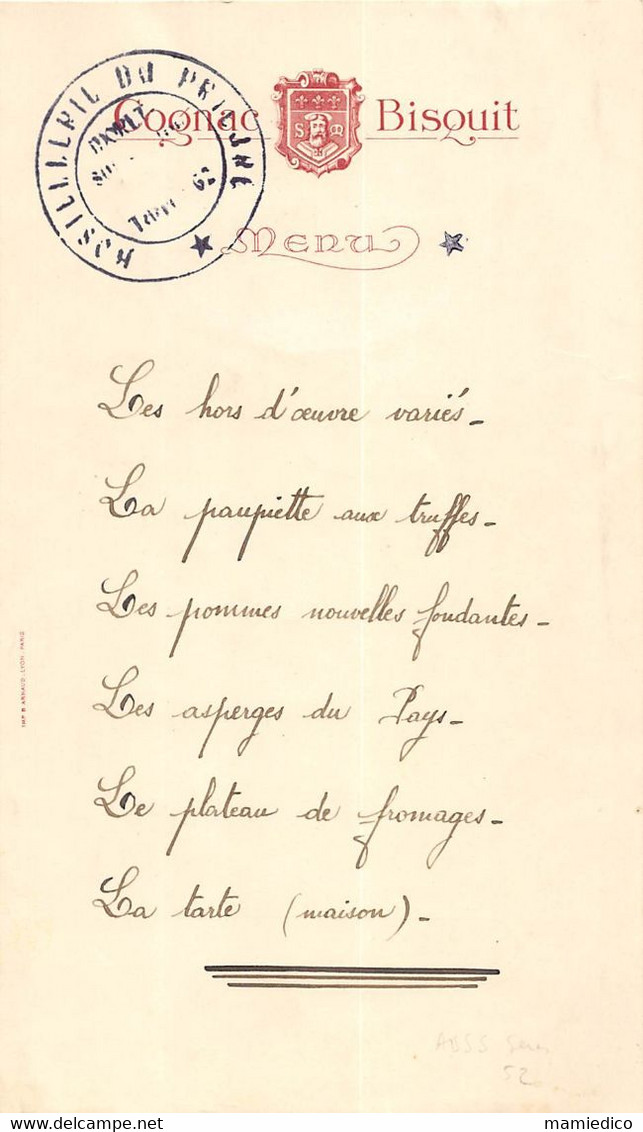 Cognac Bisquit
S M
Menu
Les hors d'œuvre variés_
La paupiette aux truffes_
Les pommes nouvelles fondantes_
Les asperges du Pays_
Le plateau de fromages_
La tarte (maison)_
IMP. B. ARNAUD. LYON. PARIS
52
mamiedico